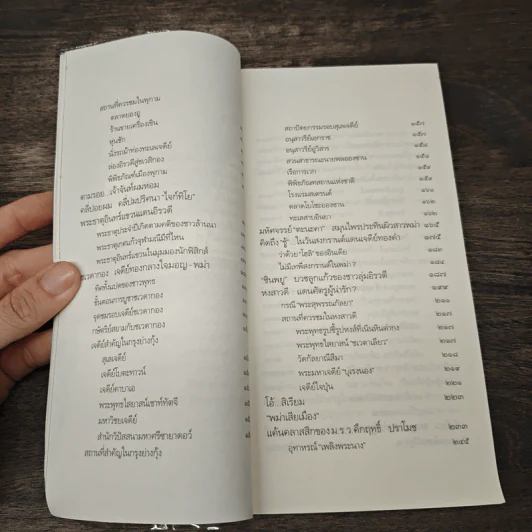 สถานที่ควรชมในพุกาม
ตลาดยองอู
ร้านขายเครื่องเขิน
หุ่นชัก
นั่งรถม้าท่องทะเลเจดีย์
ล่องอิรวดีสู่เขวสิกอง
พิพิธภัณฑ์เมืองพุกาม
ตามรอย...เจ้าจันท์ผมหอม
คลี่ปอยผม คลี่ปมปริศนา "ไจก์ทิโย"
พระธาตุอินทร์แขวนแดนอิรวดี
พระธาตุประจำปีเกิดตามคติของชาวล้านนา
พระธาตุเกศแก้วจุฬามณีมีที่ไหน
พระธาตุอินทร์แขวนในมุมมองนักฟิสิกส์
ชเวดากอง เจดีย์ทองกลางใจมอญ-พม่า
ทิศทั้งแปดของชาวพุทธ
ขั้นตอนการบูชาชเวดากอง
จุดชมรอบเจดีย์ชเวดากอง
กษัตริย์สยามกับชเวดากอง
เจดีย์สำคัญในกรุงย่างกุ้ง
สุเลเจดีย์
เจดีย์โบตะทาวน์
เจดีย์คาบาเอ
พระพุทธไสยาสน์เชาท์ทัตจี
มหาวิชยเจดีย์
สำนักวิปัสสนามหาศรีซายาดอว์
สถานที่สำคัญในกรุงย่างกุ้ง
สถาปัตยกรรมรอบสุเลเจดีย์ ๑๕๗
อนุสาวรีย์เอกราช ๑๕๗
อนุสาวรีย์อูวิสาร ๑๕๘
สวนสาธารณะนายพลอองซาน ๑๕๘
เรือการเวก ๑๕๙
พิพิธภัณฑสถานแห่งชาติ ๑๕๙
โรงแรมสแตรนด์ ๑๖๑
ตลาดโบโซะอองซาน ๑๖๑
ทะเลสาบอินยา ๑๖๒
มหัศจรรย์ "ทะนะคา" สมุนไพรประทินผิวสาวพม่า ๑๖๕
คิดถึง "อู้" ในวันสงกรานต์แดนเจดีย์ทองคำ ๑๗๕
ว่าด้วย "โฮลี" ของอินเดีย
ไม่มีลพีสงกรานต์ในพม่า? ๑๘๔
"ชินพยู" บวชลูกแก้วของชาวลุ่มอิรวดี ๑๘๗
หงสาวดี : แดนศัตรูผู้น่ารัก? ๑๙๙
กรณี "พระสุพรรณกัลยา" ๒๑๑
สถานที่ควรชมในหงสาวดี ๒๑๗
พระพุทธรูปชี้รูปหงส์ที่เนินหินดาทกง ๒๑๗
พระพุทธไสยาสน์ "ชเวตาเลียว" ๒๑๗
วัดกัลยาณีสีมา ๒๑๘
พระมหาเจดีย์ "บุเรงนอง" ๒๑๙
เจดีย์ไจปุ่น ๒๒๑
โอ้...สิเรียม ๒๒๓
"พม่าเสียเมือง"
แด้นคลาสสิกของ ม.ร.ว.คึกฤทธิ์ ปราโมช ๒๓๓
อุทาหรณ์ "เพลิงพระนาง" ๒๔๕